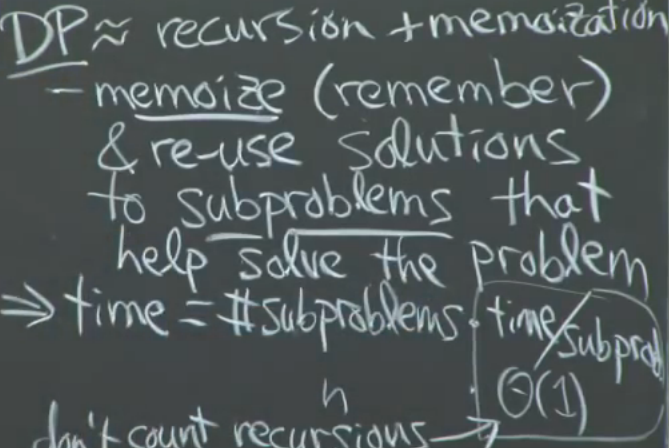 DP ≈ recursion + memoization
- memoize (remember)
& re-use solutions
to subproblems that
help solve the problem
⇒ time = #subproblems · time/subprob
n · Θ(1)
don't count recursions